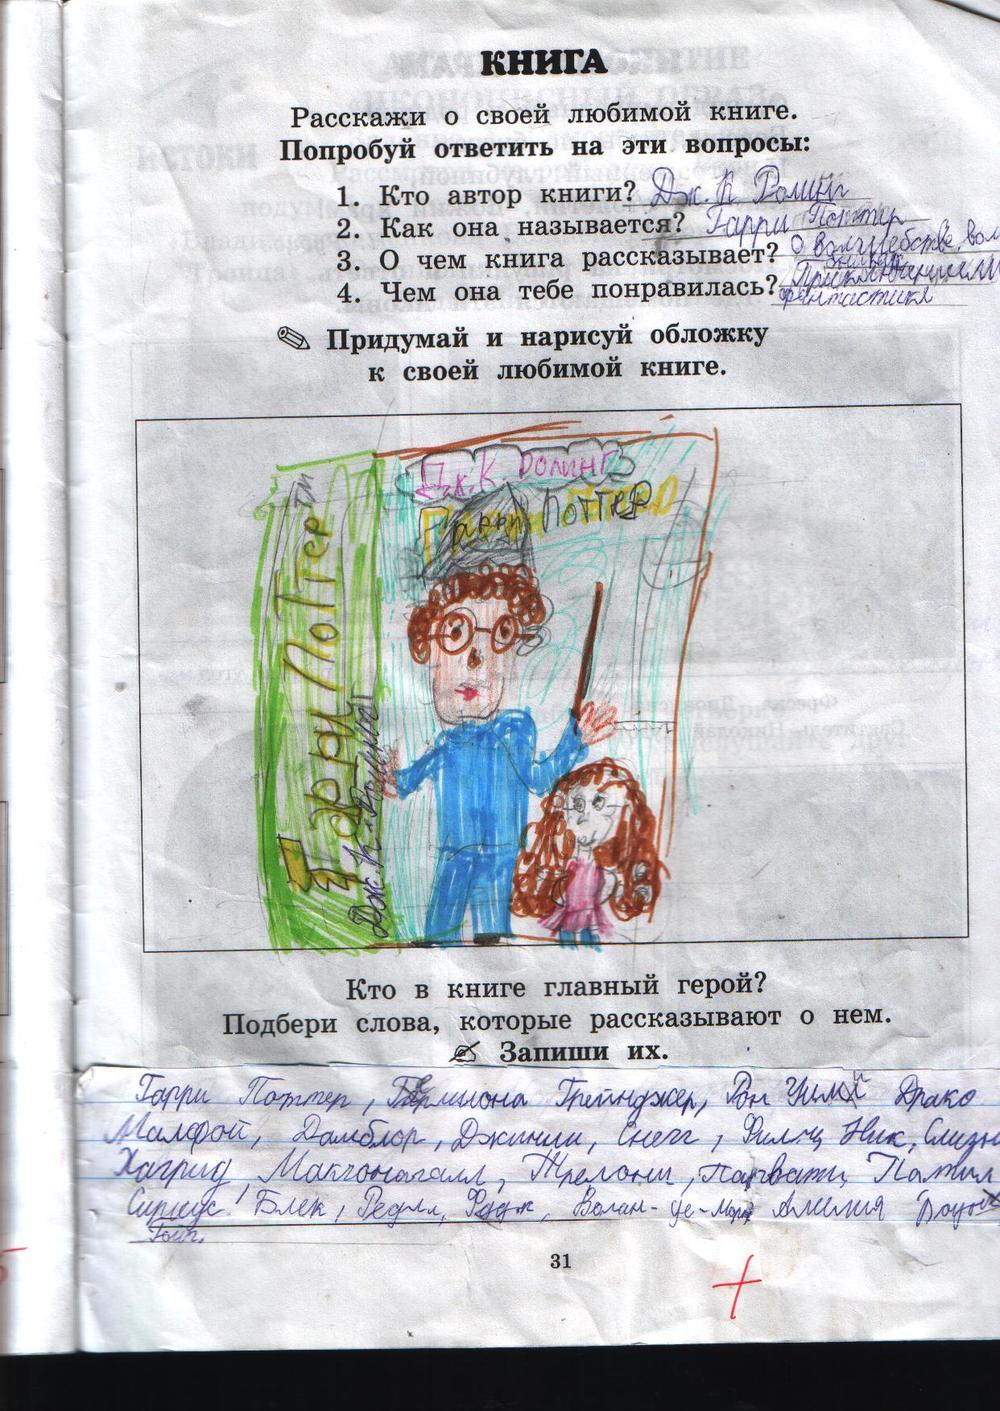 КНИГА
Расскажи о своей любимой книге.
Попробуй ответить на эти вопросы:
1. Кто автор книги? Дж. К. Ролинг
2. Как она называется? Гарри Поттер
3. О чем книга рассказывает? О волшебстве, вол
4. Чем она тебе понравилась? Приключениями
фантастика
Придумай и нарисуй обложку
к своей любимой книге.
Дж. К. РОЛИНГ
Гарри ПОТТЕР
Гарри ПоТТер
Дж. К. Ролинг
Кто в книге главный герой?
Подбери слова, которые рассказывают о нем.
Запиши их.
Гарри Поттер, Гермиона Грейнджер, Рон Драко
Малфой, Дамблор, Джинни, Снегг, Филч, Ник, Слизн
Хагрид, Макгонагалл, Трелони, Парвати, Патил
Сириус Блек, Редлл, Фадж, Волан-де-Морт Амелия Боунс
Гойл.
31